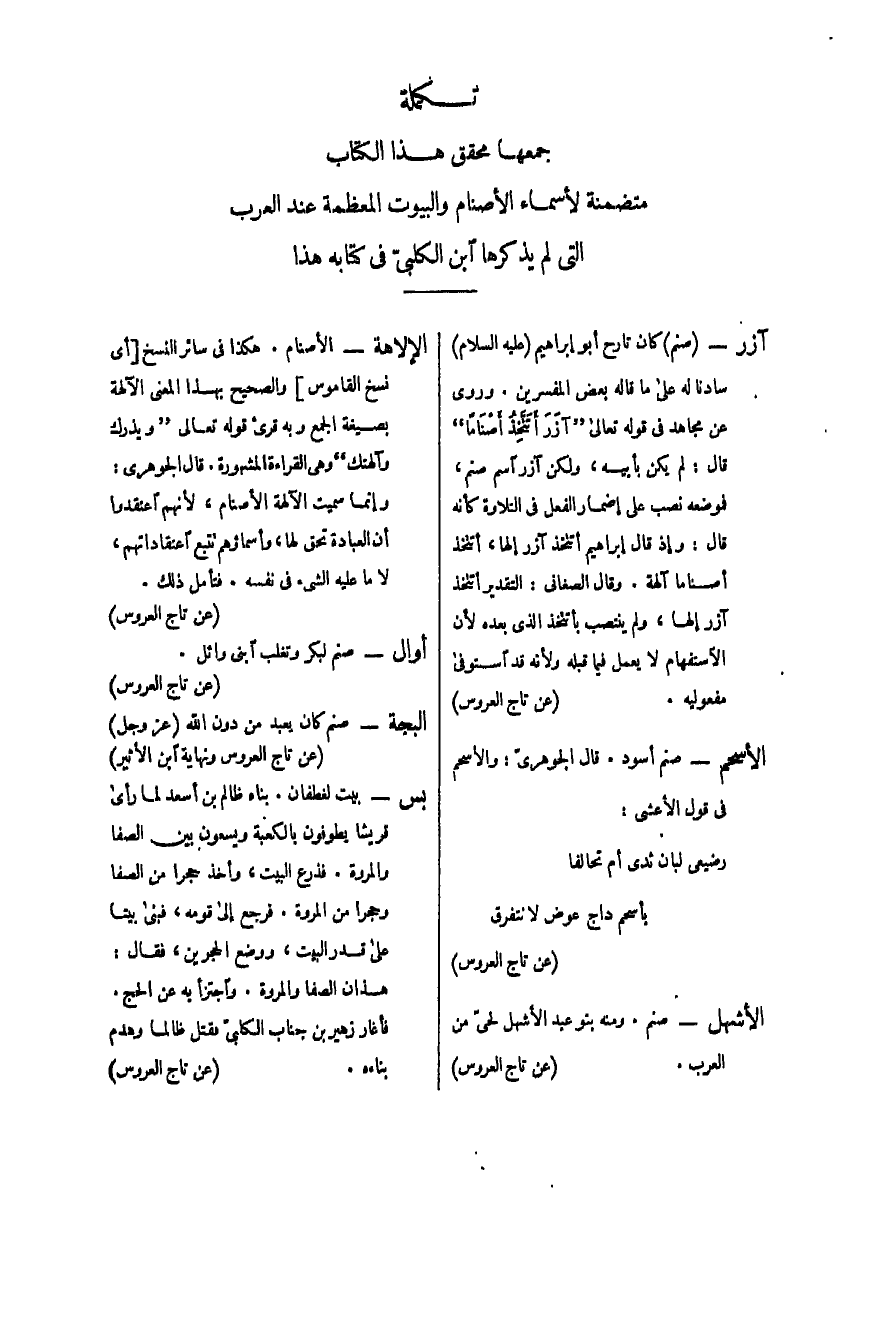 تكملة
جمعها محقق هذا الكتاب
متضمنة لأسماء الأصنام والبيوت المعظمة عند العرب
التى لم يذكرها آبن الكلبىّ فى كتابه هذا
آزر — (صنم) كان تارح أبو إبراهيم (عليه السلام)
سادنا له علىٰ ما قاله بعض المفسرين . وروى
عن مجاهد فى قوله تعالىٰ ”آزَرَ أَتَتَّخِذُ أَصْنَامًا“
قال : لم يكن بأبيه، ولكن آزر آسم صنم،
فموضعه نصب على إضمار الفعل فى التلاوة كأنه
قال : وإذ قال إبراهيم أتتخذ آزر إلها، أتتخذ
أصناما آلهة . وقال الصغانى : التقدير أتتخذ
آزر إلها، ولم ينتصب بأتتخذ الذى بعده لأن
الآستفهام لا يعمل فيما قبله ولأنه قد آستوفىٰ
مفعوليه . (عن تاج العروس)
الأسحم — صنم أسود . قال الجوهرىّ : والأسحم
فى قول الأعشى :
رضيعى لبان ثدى أم تحالفا
بأسحم داج عوض لا نتفرق
(عن تاج العروس)
الأشهل — صنم . ومنه بنو عبد الأشهل لحىّ من
العرب . (عن تاج العروس)
الإلاهة — الأصنام . هكذا فى سائر النسخ [أى
نسخ القاموس] والصحيح بهذا المعنى الآلهة
بصيغة الجمع وبه قرئ قوله تعالى ”ويذرك
وآلهتك“ وهى القراءة المشهورة . قال الجوهرى :
وإنما سميت الآلهة الأصنام، لأنهم آعتقدوا
أن العبادة تحق لها، وأسماؤهم تتبع آعتقاداتهم،
لا ما عليه الشىء فى نفسه . فتأمل ذلك .
(عن تاج العروس)
أوال — صنم لبكر وتغلب آبنى وائل .
(عن تاج العروس)
البجة — صنم كان يعبد من دون الله (عز وجل)
(عن تاج العروس ونهاية آبن الأثير)
بس — بيت لغطفان . بناه ظالم بن أسعد لما رأىٰ
قريشا يطوفون بالكعبة ويسعون بين الصفا
والمروة . فذرع البيت، وأخذ حجرا من الصفا
وحجرا من المروة . فرجع إلىٰ قومه، فبنىٰ بيتا
علىٰ قدر البيت، ووضع الحجرين، فقال :
هذان الصفا والمروة . وآجتزأ به عن الحج .
فأغار زهير بن جناب الكلبىّ فقتل ظالما وهدم
بناءه . (عن تاج العروس)